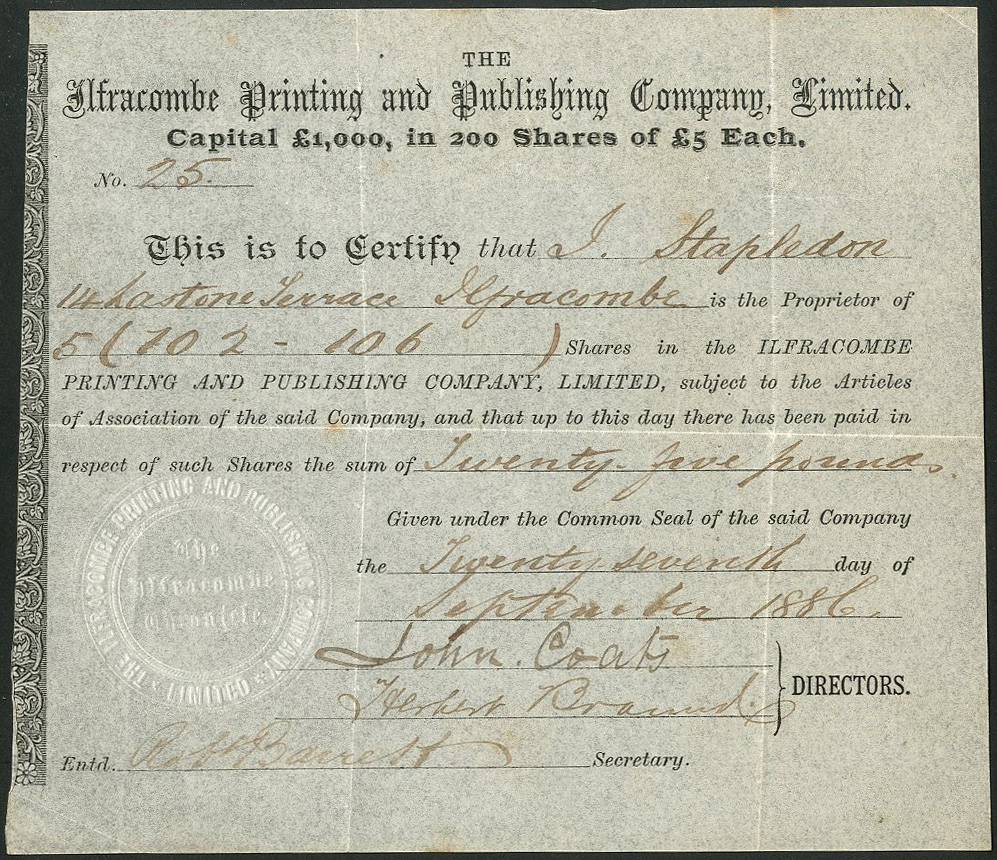 THE
Ilfracombe Printing and Publishing Company, Limited.
Capital £1,000, in 200 Shares of £5 Each.
No. 25.
This is to Certify that J. Stapledon
14 Lastone Terrace Ilfracombe is the Proprietor of
5 (102 - 106 ) Shares in the ILFRACOMBE
PRINTING AND PUBLISHING COMPANY, LIMITED, subject to the Articles
of Association of the said Company, and that up to this day there has been paid in
respect of such Shares the sum of Twenty-five pounds
THE ILFRACOMBE PRINTING AND PUBLISHING COMPANY LIMITED
The
Ilfracombe
Chronicle.
Given under the Common Seal of the said Company
the Twenty seventh day of
September 1886.
John. Coats
Herbert
DIRECTORS.
Entd. Robt Barrett Secretary.